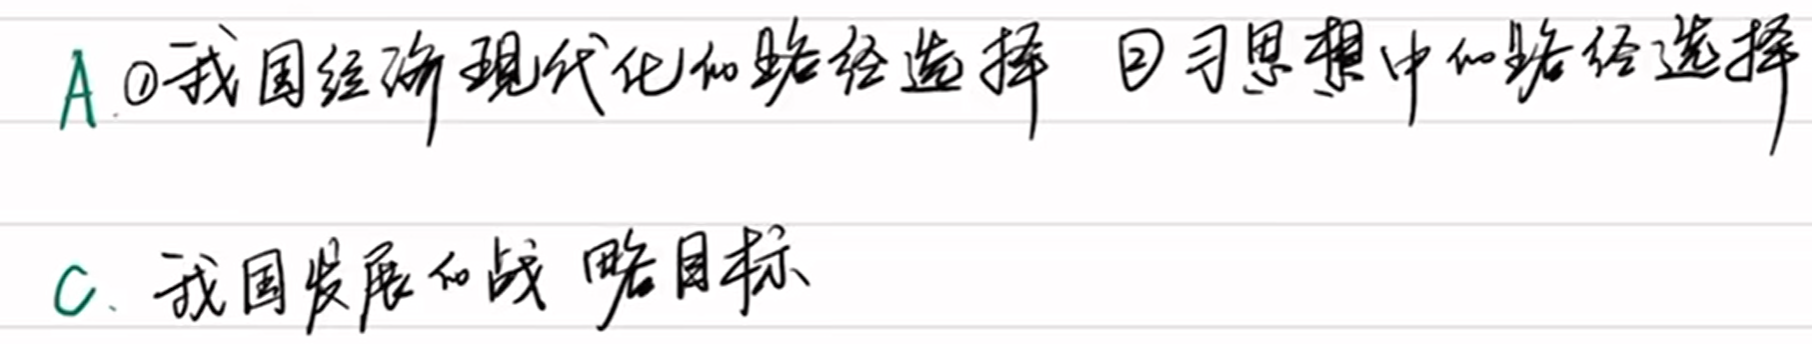 A. ①我国经济现代化的路径选择 ②习思想中的路径选择
C. 我国发展的战略目标